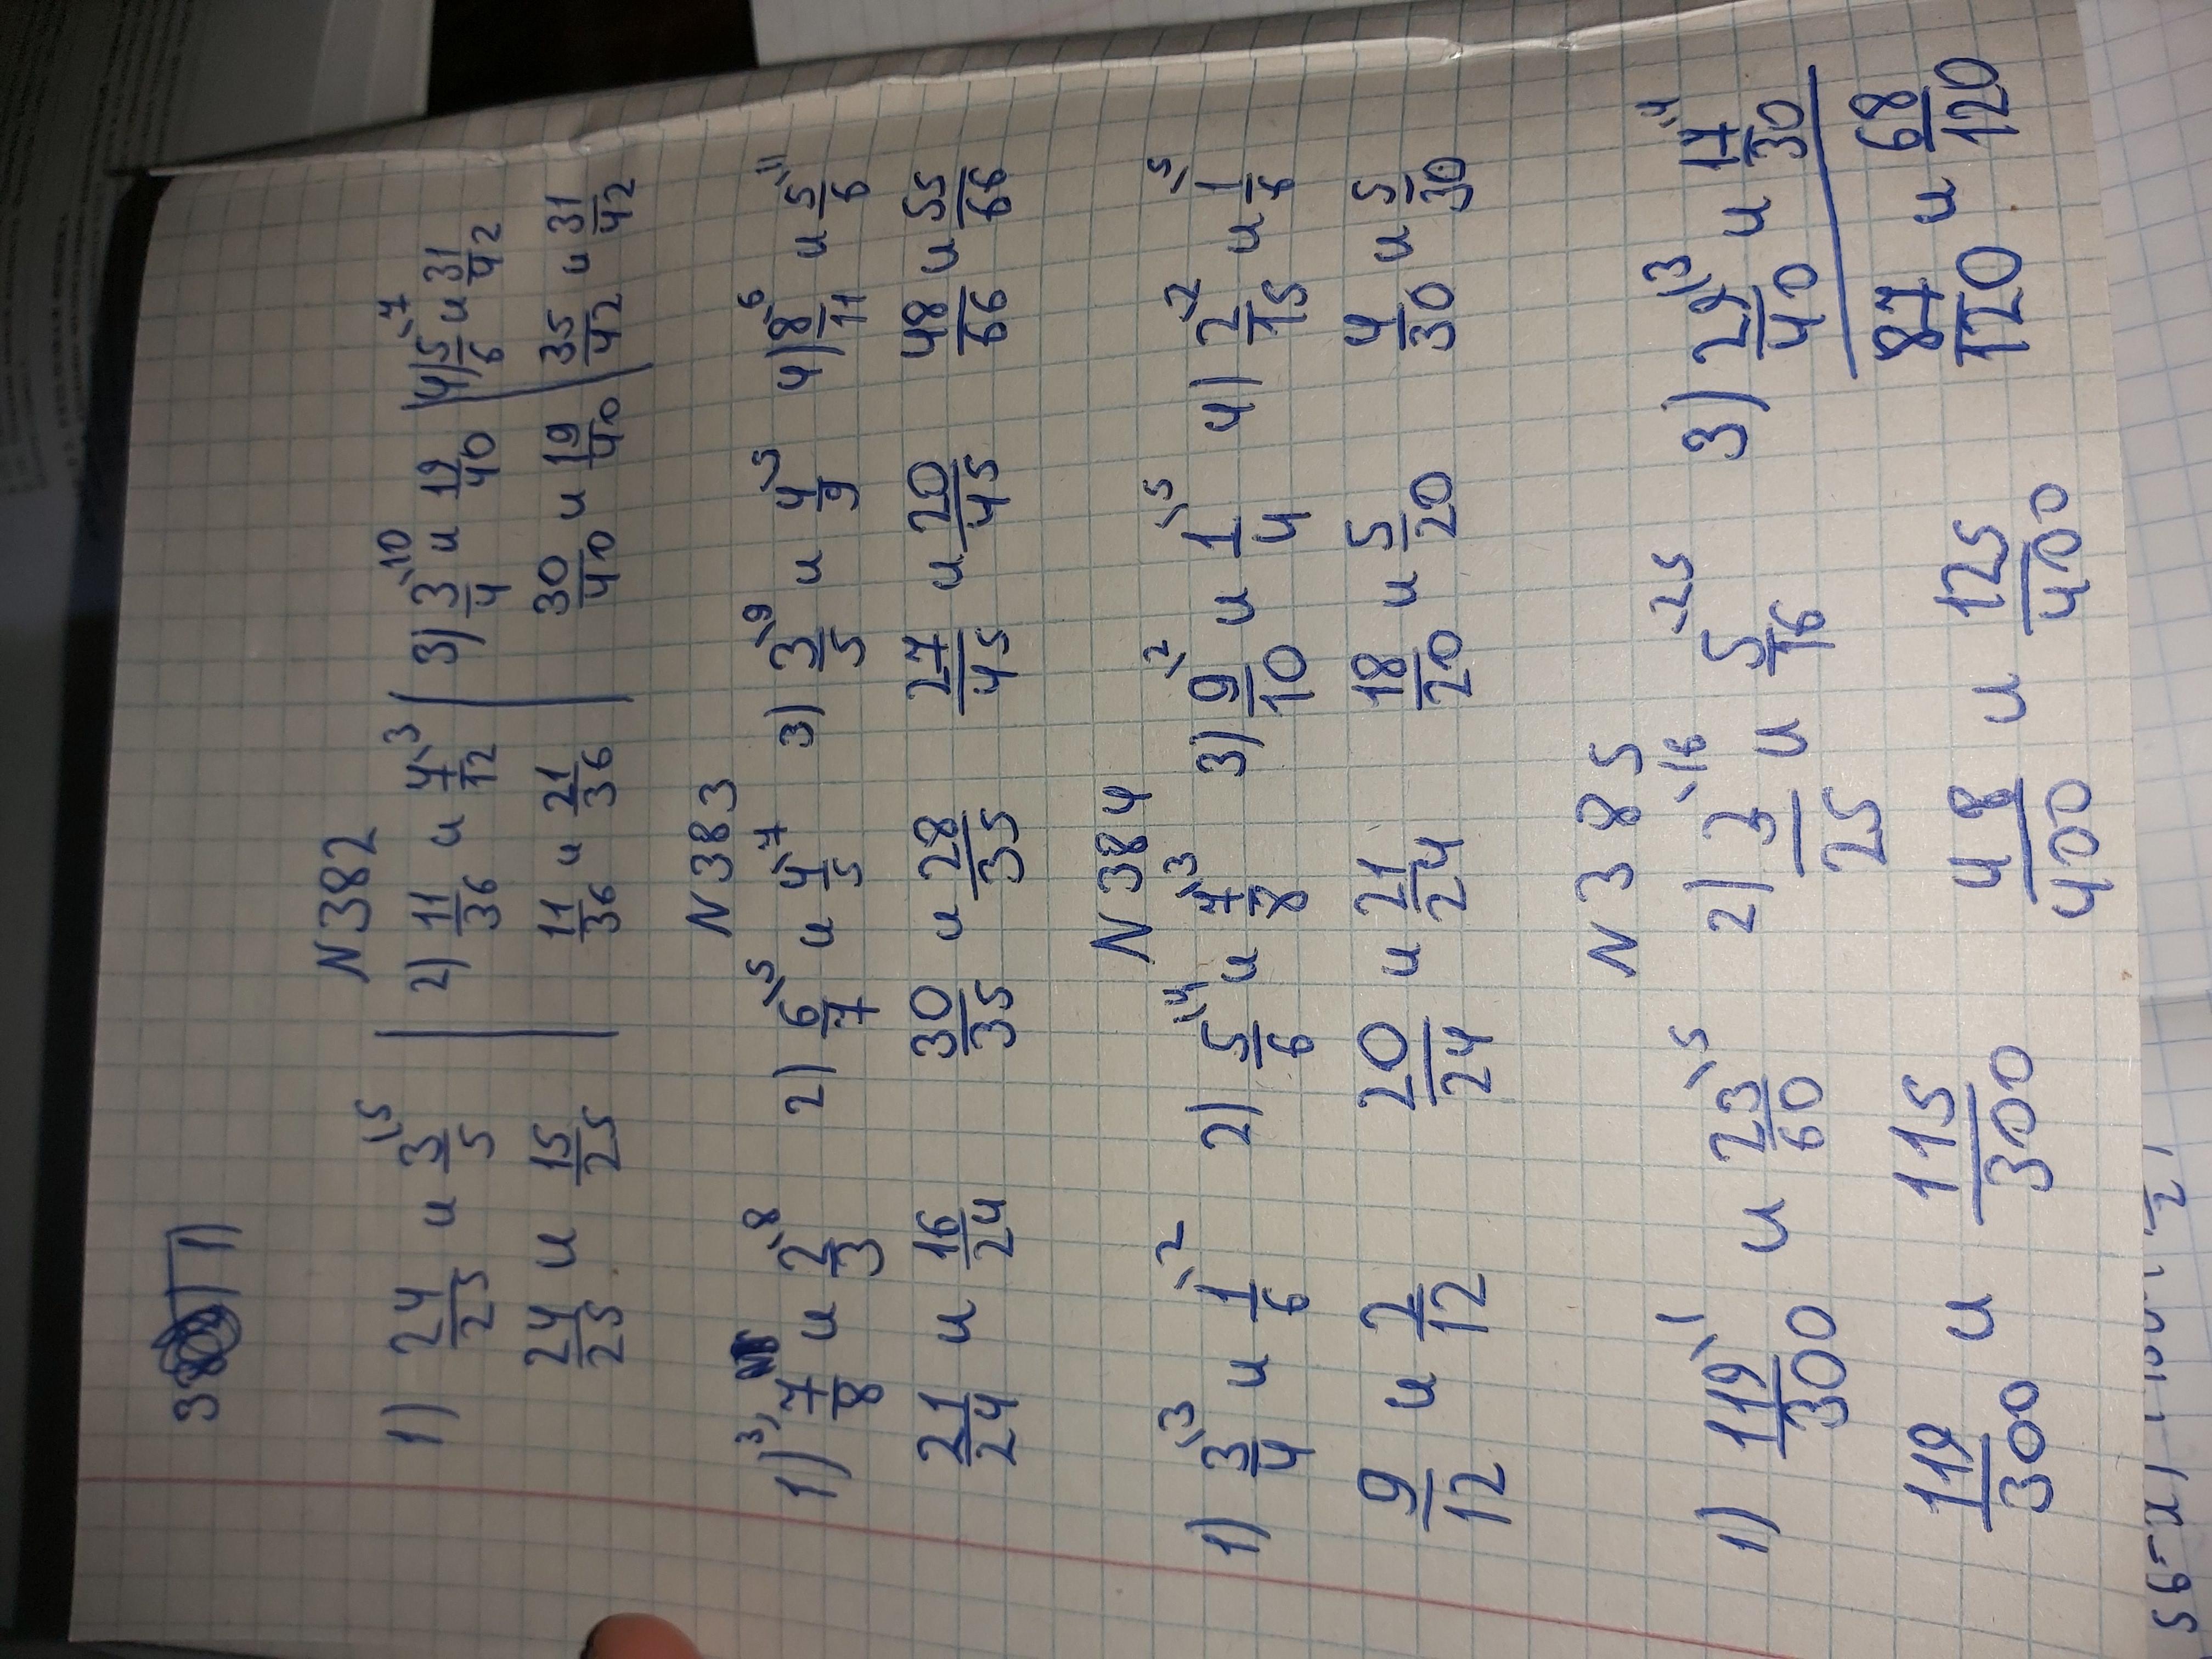 1)
N382
1) 24/25 и 3/5 \5 | 2) 11/36 и 7/12 \3 | 3) 3/4 \10 и 19/40 | 4) 5/6 \7 и 31/42
24/25 и 15/25 | 11/36 и 21/36 | 30/40 и 19/40 | 35/42 и 31/42
N383
1) 3/ 7/8 и 2/3 \8 2) 6/7 \5 и 4/5 \7 3) 3/5 \9 и 4/9 \5 4) 8/11 \6 и 5/6 \11
21/24 и 16/24 30/35 и 28/35 27/45 и 20/45 48/66 и 55/66
N384
1) 3/4 \3 и 1/6 \2 2) 5/6 \4 и 7/8 \3 3) 9/10 \2 и 1/4 \5 4) 2/15 \2 и 1/6 \5
9/12 и 2/12 20/24 и 21/24 18/20 и 5/20 4/30 и 5/30
N385
1) 119/300 \1 и 23/60 \5 2) 3/25 \16 и 5/16 \25 3) 29/40 \3 и 17/30 \4
119/300 и 115/300 48/400 и 125/400 87/120 и 68/120